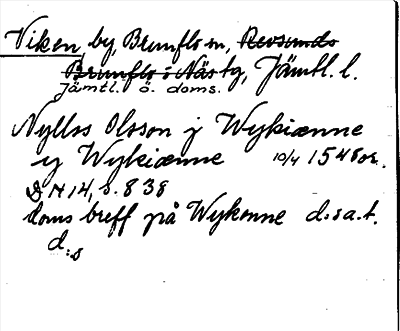 Viken, by, Brunflo sn, Revsunds
Brunflo o Näs tg, Jämtl. l.
Jämtl. ö. doms.
Nyllss Olsson j Wykiænne
y Wykiænne 10/4 1548 or.
N 14, s. 838
doms breff på Wykenne d:sa.t.
d:s